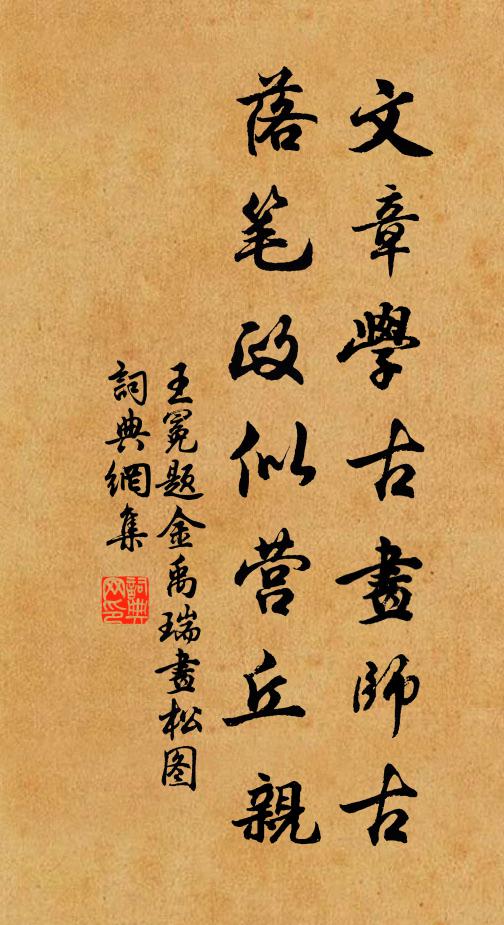 文章學古畫師古
落笔政似营丘親
王冕题金禹瑞畫松图
詞典網集
詞典网印